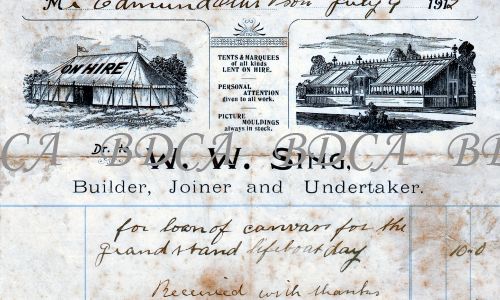 Mr Edmund & Son July 9 1912
ON HIRE
TENTS & MARQUEES
of all kinds
LENT ON HIRE.
PERSONAL
ATTENTION
given to all work.
PICTURE
MOULDINGS
always in stock.
Dr. to
BDCA BDCA BDCA BDCA
W. W. Sing,
Builder, Joiner and Undertaker.
for loan of canvass for the
grand stand lifeboat day 10-0
Received with thanks